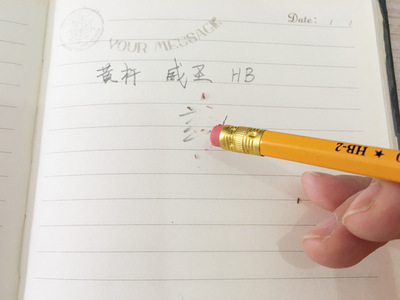 Date: / /
YOUR MESSAGE
黄杆 威圣 HB
HB-2